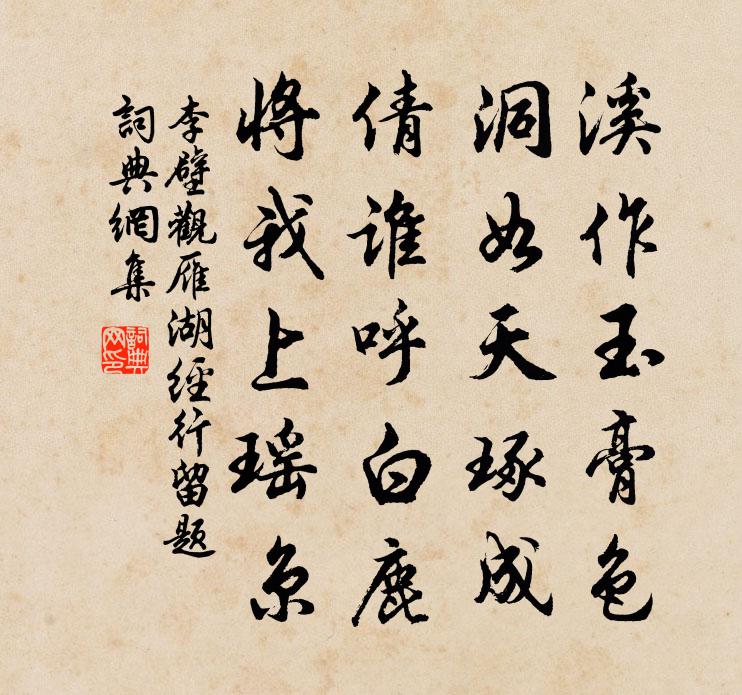 溪作玉膏色
洞如天琢成
倩誰呼白鹿
將我上瑶京
李壁觀雁湖經行留題
詞典網集
詞典
网印